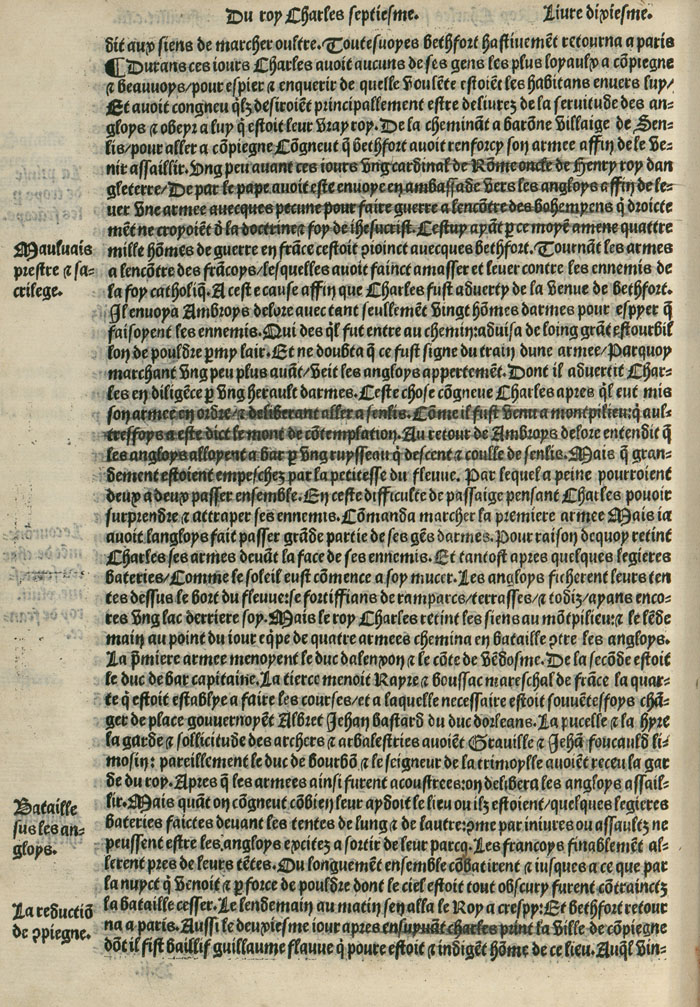 Du roy Charles septiesme. Liure dixiesme.
dit aux siens de marcher oultre. Toutesuoyes bethfort hastiuemēt retourna a paris
¶Durans ces iours Charles auoit aucuns de ses gens les plus loyaulx a cōpiegne
⁊ beauuoys/pour espier ⁊ enquerir de quelle voulēte estoiēt les habitans enuers luy/
Et auoit congneu qlz desiroiēt principallement estre deliurez de la seruitude des an-
gloys ⁊ obeyr a luy q̄ estoit leur vray roy. De la chemināt a barōne villaige de Sen-
lis/pour aller a cōpiegne Cōgneut q̄ bethfort auoit renforcy son armee affin de le ve-
nir assaillir. Vng peu auant ces iours vng cardinal de Rōme oncle de Henry roy dan
gleterre/De par le pape auoit este enuoye en ambassade vers les angloys affin de le-
uer vne armee auecques pecune pour faire guerre a lencōtre des bohempens q̄ droicte
mēt ne croyoiēt ā la doctrine ⁊ foy de ihesucrist. Cestuy ayāt p̱ ce moyē amene quattre
mille hōmes de guerre en frāce cestoit ꝯioinct auecques bethfort. Tournāt les armes
a lencōtre des francoys/lesquelles auoit fainct amasser et leuer contre les ennemis de
la foy catholiq̄. A cest e cause affin que Charles fust aduerty de la venue de bethfort.
Il enuoya Ambroys delore auec tant seullement vingt hōmes darmes pour espyer q̄
faisoyent les ennemis. Qui des ql fut entre au chemin: aduisa de loing grāt estourbil
lon de pouldre p̱my lair. Et ne doubta q̄ ce fust signe du train dune armee/Parquoy
marchant vng peu plus auāt/veit les angloys appertemēt. Dont il aduertit Char-
les en diligēce p̱ vng herault darmes. Ceste chose cōgneue Charles apres ql eut mis
son armee en ordre/⁊ deliberant aller a senlis. Cōme il fust venu a montpilieu: q̄ aul-
treffoys a este dict le mont de cōtemplation. Au retour de Ambroys delore entendit q̄
les angloys alloyent a bar p̱ vng ruysseau q̄ descent ⁊ coulle de senlis. Mais q̄ gran-
dement estoient empeschez par la petitesse du fleuue. Par lequel a peine pourroient
deux a deux passer ensemble. En ceste difficulte de passaige pensant Charles pouoir
surprendre ⁊ attraper ses ennemis. Cōmanda marcher la premiere armee Mais ia
auoit langloys fait passer grāde partie de ses gēs darmes. Pour raison dequoy retint
Charles ses armes deuāt la face de ses ennemis. Et tantost apres quelques legieres
bateries/Comme le soleil eust cōmence a soy mucer. Les angloys ficherent leurs ten
tes dessus le bort du fleuue: se fortiffians de ramparcs/terrasses/⁊ todiz/ayans enco-
res vng lac derriere soy. Mais le roy Charles retint les siens au mōtpilieu: ⁊ le lēde
main au point du iour eq̄pe de quatre armees chemina en bataille ꝯtre les angloys.
La p̄miere armee menoyent le duc dalenxon ⁊ le cōte de vēdosme. De la secōde estoit
le duc de bar capitaine. La tierce menoit Rayre ⁊ boussac mareschal de frāce la quar-
te q̄ estoit establye a faire les courses/et a laquelle necessaire estoit souuētesfoys chā-
ger de place gouuernoyēt Albret Jehan bastard du duc dorleans. La pucelle ⁊ la hyre
la garde ⁊ sollicitude des archers ⁊ arbalestries auoiēt Grauille ⁊ Jehā foucauld li-
mosin: pareillement le duc de bourbō ⁊ le seigneur de la trimoylle auoiēt receu la gar
de du roy. Apres q̄ les armees ainsi furent acoustrees: on delibera les angloys assail-
lir. Mais quāt on cōgneut cōbien leur aydoit le lieu ou ilz estoient/quelques legieres
bateries faictes deuant les tentes de lung ⁊ de lautre: ꝯme par iniures ou assaultz ne
peussent estre les angloys excitez a sortir de leur parcq. Les francoys finablemēt al-
lerent pres de leurs tētes. Ou longuemēt ensemble cōbatirent ⁊ iusques a ce que par
la nuyct q̄ venoit ⁊ p̱ force de pouldre dont le ciel estoit tout obscury furent cōtrainctz
la bataille cesser. Le lendemain au matin sen alla le Roy a crespy: Et bethfort retour
na a paris. Aussi le deuxiesme iour apres ensuyuāt charles print la ville de cōpiegne
dōt il fist baillif guillaume flauue q̄ poure estoit ⁊ indigēt hōme de ce lieu. Auql vin-
Mauluais
prestre ⁊ sa-
crilege.
Bataille
sus les an-
gloys.
La reductiō
de ꝯpiegne.